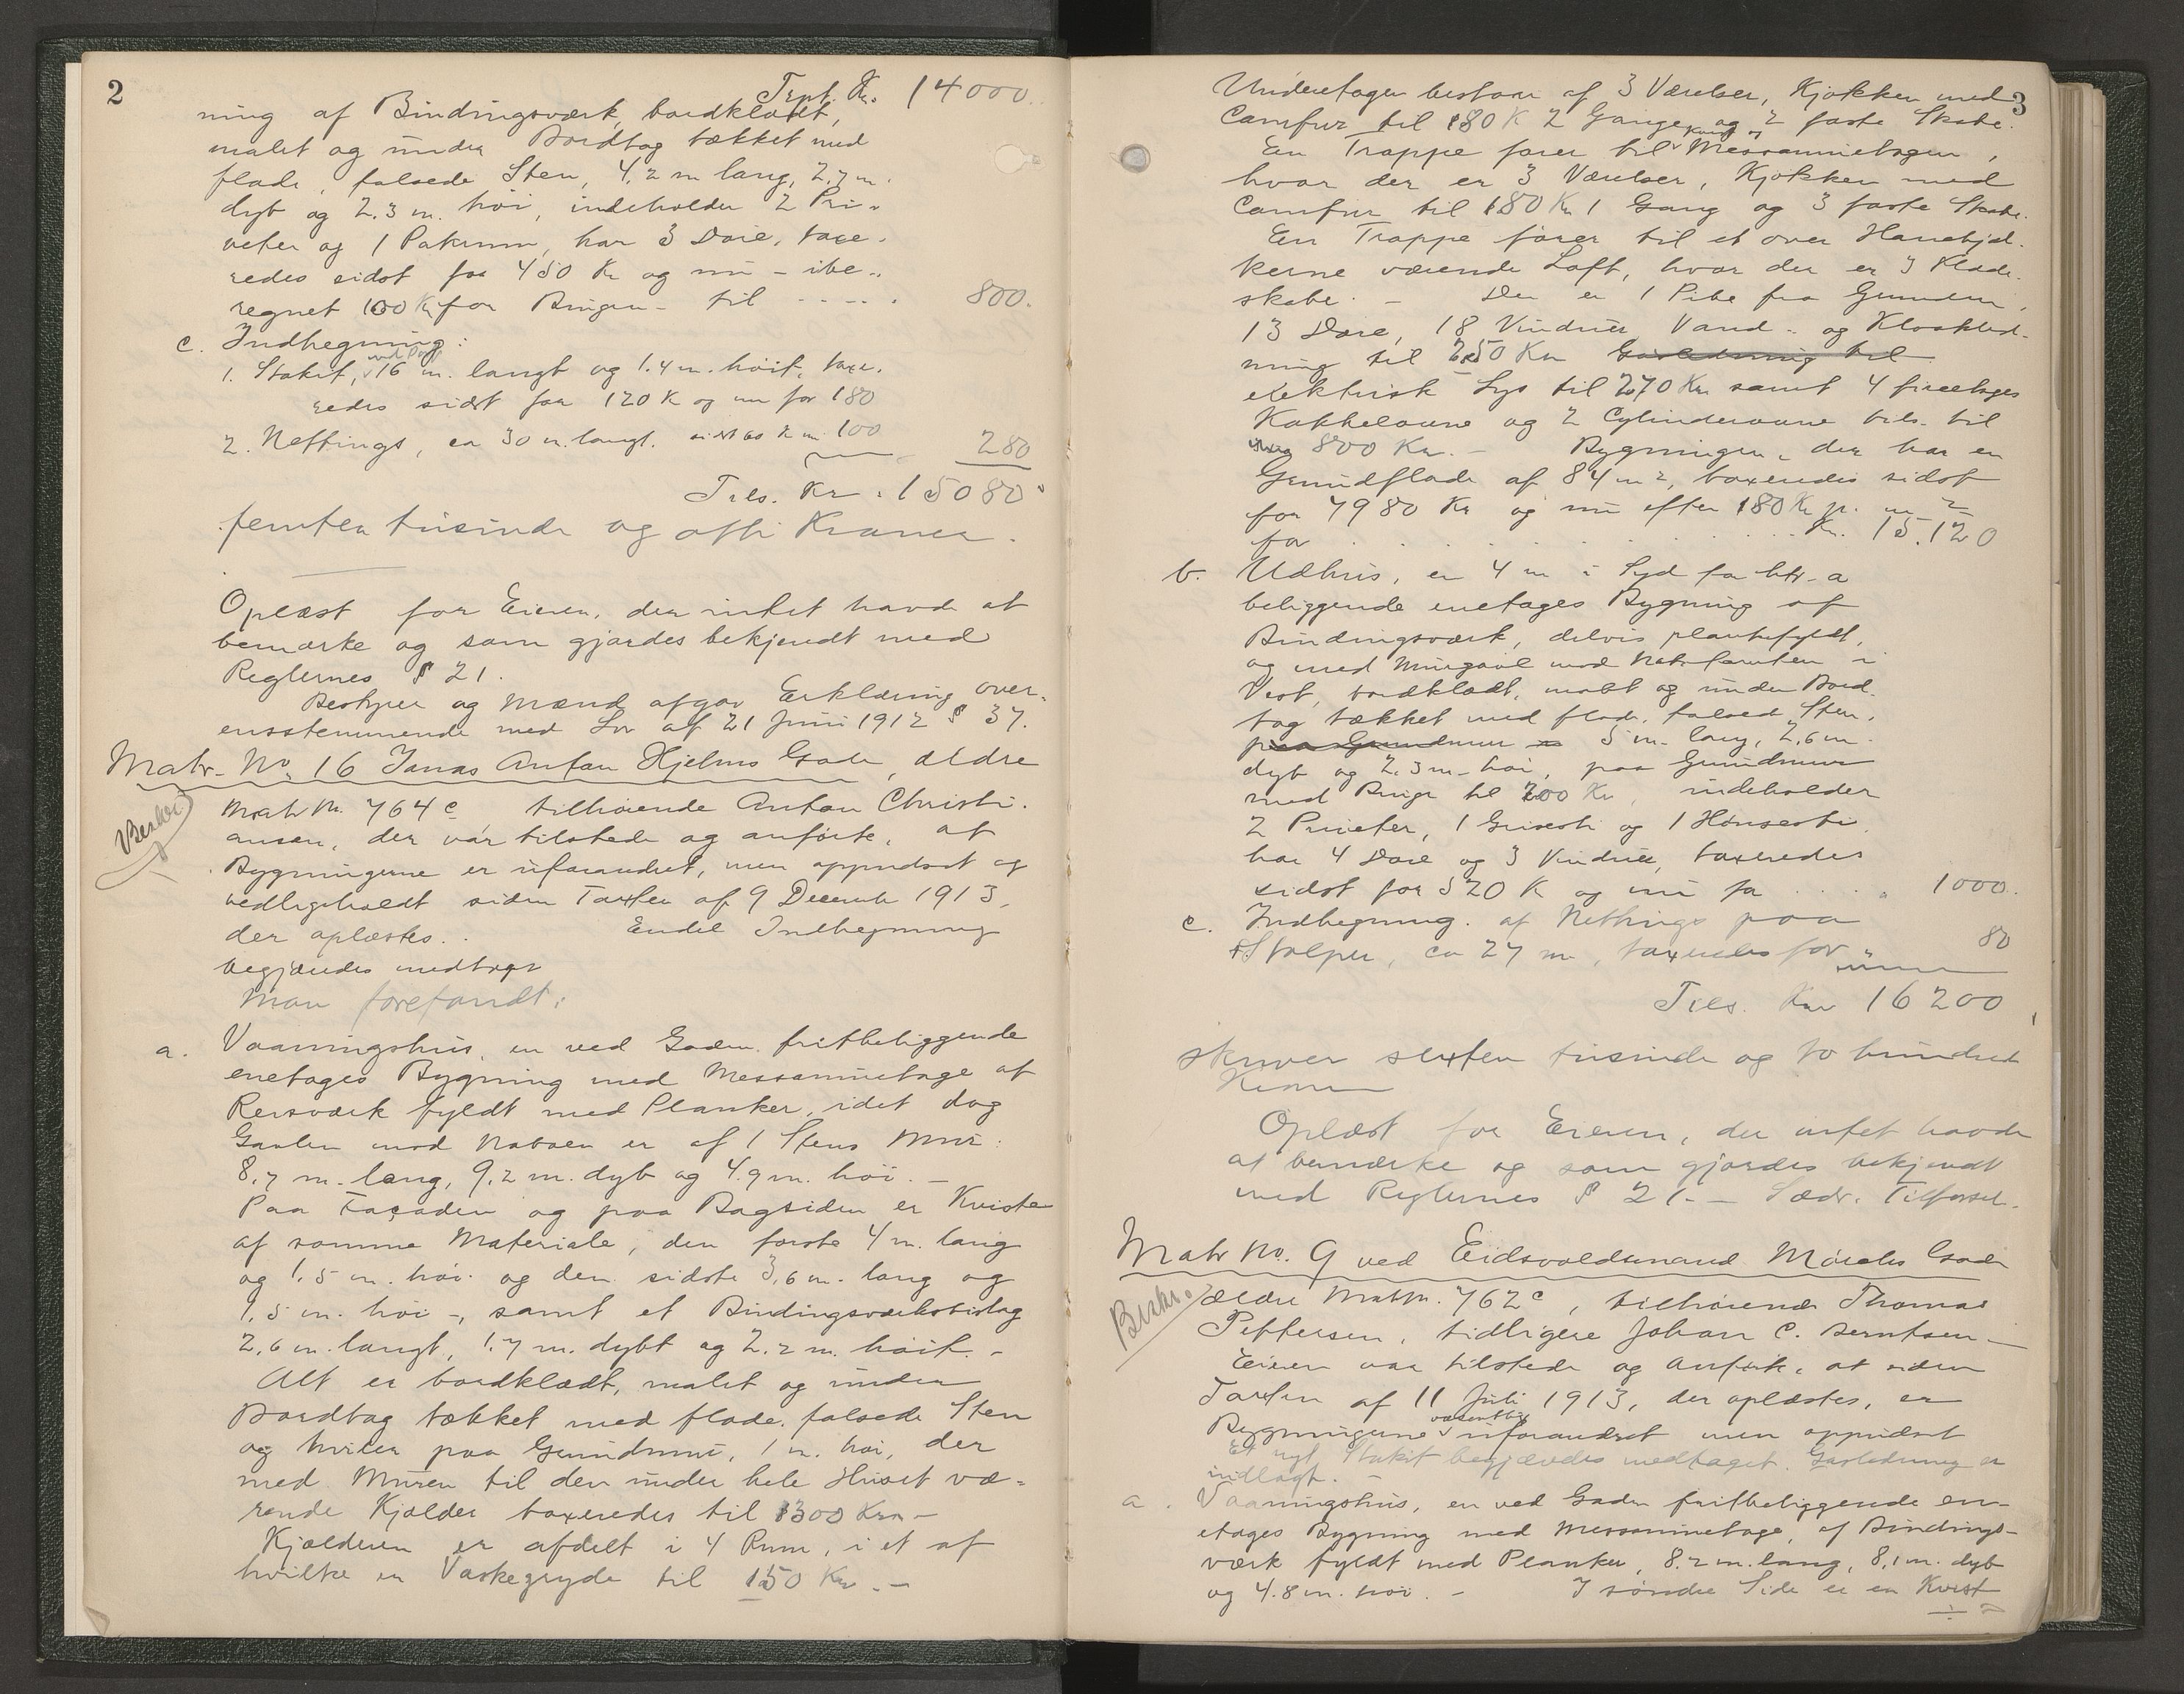 2
Trpt. Kr. 14000.
ning af Bindingsværk, bordklædt,
malet og under Bordtag tækket med
flade, falsede Sten, 4,2 m lang, 2,7 m.
dyb og 2,3 m. høi, indeholder 2 Pri-
veter og 1 Pakrum, har 3 Døre, taxe-
redes sidst for 450 Kr og nu - ibe-
regnet 100 Kr for Bingen - til - - - - . 800.
c. Indhegning:
1. Stakit, 16 m. langt og 1.4 m. høit, taxe-
redes sidst for 120 K og nu for 180
2. Nettings, ca 30 m. langt. sidst 60 K nu 100 280
Tils. Kr. 15080
femten tusinde og otti Kroner.
Oplæst for Eieren, der intet havde at
bemærke og som gjordes bekjendt med
Reglernes § 21.
Bestyrer og Mænd afgav Erklæring over-
ensstemmende med Lov af 21 Juni 1912 § 37.
Matr. No. 16 Jonas Anton Hjelms Gade, ældre
Beskr.
Matr No. 764 c tilhørende Anton Christi-
ansen, der var tilstede og anførte, at
Bygningerne er uforandret, men oppudset og
vedligeholdt siden Taxten af 9 December 1913,
der oplæstes. Endel Indhegning
begjæredes medtaget
Man forefandt:
a. Vaaningshus, en ved Gaden fritbeliggende
enetages Bygning med Messaninetage af
Reisværk fyldt med Planker, idet dog
Gavlen mod Naboen er af 1 Stens Mur.
8,7 m. lang, 9,2 m. dyb og 4.9 m. høi. -
Paa Façaden og paa Bagsiden er Kviste
af samme Materiale, den første 4 m. lang
og 1,5 m. høi og den sidste 3,6 m. lang og
1,5 m. høi -, samt et Bindingsværksbislag
2,6 m. langt, 1.7 m. dybt og 2.2 m. høit. -
Alt er bordklædt, malet og under
Bordtag tækket med flade, falsede Sten
og hviler paa Grundmur, 1 m. høi, der
med Muren til den under hele Huset væ-
rende Kjælder taxeredes til 1300 Kr. -
Kjælderen er afdelt i 4 Rum, i et af
hvilke en Vaskegryde til 150 Kr. -
3
Underetagen bestaar af 3 Værelser, Kjøkken med
Comfur til 180 K 2 Gange og 2 faste Skabe.
En Trappe fører til Messaninetagen,
hvor der er 3 Værelser, Kjøkken med
Comfur til 180 Kr 1 Gang og 3 faste Skabe.
En Trappe fører til et over Hanebjæl-
kerne værende Loft, hvor der er 3 Klæde-
skabe. - Der er 1 Pibe fra Grunden,
13 Døre, 18 Vinduer, Vand- og Kloakled-
ning til 250 Kr Gasledning til
elektrisk Lys til 270 Kr samt 4 fireetages
Kakkelovne og 2 Cylinderovne tils. til
800 Kr. - Bygningen, der har en
Grundflade af 84 m², taxeredes sidst
for 7980 Kr og nu efter 180 Kr p. m²
for . . . . . . . . . Kr. 15.120
b. Udhus, en 4 m i Syd for litr. a
beliggende enetages Bygning af
Bindingsværk, delvis plankefyldt,
og med Murgavl mod Nabotomten i
Vest, bordklædt, malt og under Bord-
tag tækket med flade, falsed Sten,
paa Grundmur 5 m. lang, 2,6 m.
dyb og 2.3 m. høi, paa Grundmur
med Binge til 200 Kr, indeholder
2 Priveter, 1 Grisesti og 1 Hønsesti,
har 4 Døre og 3 Vinduer, taxeredes
sidst for 520 K og nu for . . . . 1000.
c. Indhegning af Nettings paa
Stolper, ca 27 m, taxeredes for " 80
Tils. Kr 16200
skriver sexten tusinde og to hundred
Kroner
Oplæst for Eieren, der intet havde
at bemærke og som gjordes bekjendt
med Reglernes § 21. - Sædv. Tilførsel.
Matr No. 9 ved Eidsvoldsmand Mørchs Gade
Beskr.
ældre Matr No. 762 c, tilhørende Thomas
Pettersen, tidligere Johan C. Berntsen -
Eieren var tilstede og anførte, at siden
Taxten af 11 Juli 1913, der oplæstes, er
Bygningerne væsentlig uforandret men oppudset
Et nyt Stakit begjæredes medtaget. Gasledning er
indlagt. -
a. Vaaningshus, en ved Gaden fritbeliggende en-
etages Bygning med Messaninetage, af Bindings-
værk fyldt med Planker, 8.2 m. lang, 8,1 m. dyb
og 4.8 m. høi. - I søndre Side er en Kvist